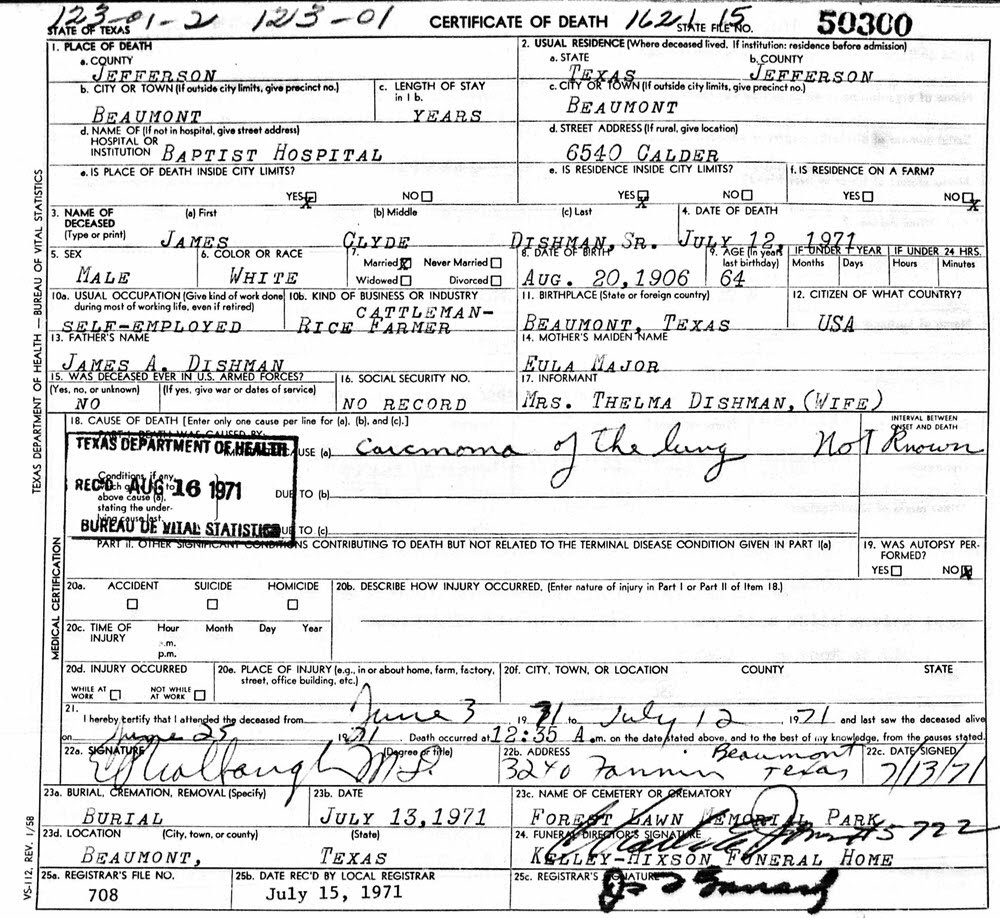 123-01-2 1213-01 CERTIFICATE OF DEATH 1621 15 50300
STATE OF TEXAS STATE FILE NO.
1. PLACE OF DEATH 2. USUAL RESIDENCE (Where deceased lived. If institution: residence before admission)
a. COUNTY a. STATE b. COUNTY
JEFFERSON TEXAS JEFFERSON
b. CITY OR TOWN (If outside city limits, give precinct no.) c. LENGTH OF STAY in 1 b. c. CITY OR TOWN (If outside city limits, give precinct no.)
BEAUMONT YEARS BEAUMONT
d. NAME OF (If not in hospital, give street address) d. STREET ADDRESS (If rural, give location)
HOSPITAL OR
INSTITUTION BAPTIST HOSPITAL 6540 CALDER
e. IS PLACE OF DEATH INSIDE CITY LIMITS? e. IS RESIDENCE INSIDE CITY LIMITS? f. IS RESIDENCE ON A FARM?
YES X NO YES X NO YES NO X
3. NAME OF DECEASED (Type or print) (a) First (b) Middle (c) Last 4. DATE OF DEATH
JAMES CLYDE DISHMAN, SR. JULY 12, 1971
5. SEX 6. COLOR OR RACE 7. Married X Never Married 8. DATE OF BIRTH 9. AGE (In years last birthday) IF UNDER 1 YEAR IF UNDER 24 HRS.
Widowed Divorced Months Days Hours Minutes
MALE WHITE AUG. 20, 1906 64
10a. USUAL OCCUPATION (Give kind of work done during most of working life, even if retired) 10b. KIND OF BUSINESS OR INDUSTRY 11. BIRTHPLACE (State or foreign country) 12. CITIZEN OF WHAT COUNTRY?
CATTLEMAN-
SELF-EMPLOYED RICE FARMER BEAUMONT, TEXAS USA
13. FATHER'S NAME 14. MOTHER'S MAIDEN NAME
JAMES A. DISHMAN EULA MAJOR
15. WAS DECEASED EVER IN U.S. ARMED FORCES? 16. SOCIAL SECURITY NO. 17. INFORMANT
(Yes, no, or unknown) (If yes, give war or dates of service)
NO NO RECORD MRS. THELMA DISHMAN, (WIFE)
18. CAUSE OF DEATH [Enter only one cause per line for (a), (b), and (c).] INTERVAL BETWEEN ONSET AND DEATH
PART I. DEATH WAS CAUSED BY:
IMMEDIATE CAUSE (a) Carcinoma of the lung Not Known
TEXAS DEPARTMENT OF HEALTH
REC'D AUG 16 1971
BUREAU OF VITAL STATISTICS
Conditions, if any, which gave rise to above cause (a), stating the underlying cause last.
DUE TO (b)
DUE TO (c)
PART II. OTHER SIGNIFICANT CONDITIONS CONTRIBUTING TO DEATH BUT NOT RELATED TO THE TERMINAL DISEASE CONDITION GIVEN IN PART I(a) 19. WAS AUTOPSY PERFORMED?
YES NO X
20a. ACCIDENT SUICIDE HOMICIDE 20b. DESCRIBE HOW INJURY OCCURRED. (Enter nature of injury in Part I or Part II of Item 18.)
20c. TIME OF INJURY Hour Month Day Year
a.m.
p.m.
20d. INJURY OCCURRED 20e. PLACE OF INJURY (e.g., in or about home, farm, factory, street, office building, etc.) 20f. CITY, TOWN, OR LOCATION COUNTY STATE
WHILE AT WORK NOT WHILE AT WORK
21. I hereby certify that I attended the deceased from June 3 1971 to July 12 1971 and last saw the deceased alive
on June 25 1971 Death occurred at 12:35 A.m. on the date stated above, and to the best of my knowledge, from the causes stated.
22a. SIGNATURE (Degree or title) 22b. ADDRESS 22c. DATE SIGNED
M.D. 3240 Fannin Beaumont Texas 7/13/71
23a. BURIAL, CREMATION, REMOVAL (Specify) 23b. DATE 23c. NAME OF CEMETERY OR CREMATORY
BURIAL JULY 13, 1971 FOREST LAWN MEMORIAL PARK
23d. LOCATION (City, town, or county) (State) 24. FUNERAL DIRECTOR'S SIGNATURE 5722
BEAUMONT, TEXAS KELLEY-HIXSON FUNERAL HOME
25a. REGISTRAR'S FILE NO. 25b. DATE REC'D BY LOCAL REGISTRAR 25c. REGISTRAR'S SIGNATURE
708 July 15, 1971
TEXAS DEPARTMENT OF HEALTH — BUREAU OF VITAL STATISTICS
MEDICAL CERTIFICATION
VS-112, REV. 1/58